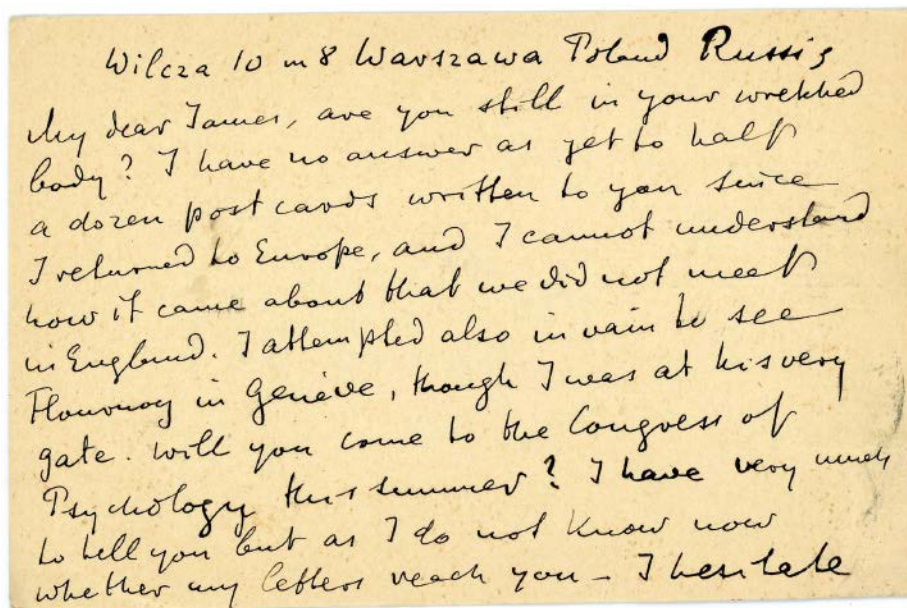 Wilcza 10 m 8 Warszawa Poland Russia
My dear James, are you still in your wretched
body? I have no answer as yet to half
a dozen post cards written to you since
I returned to Europe, and I cannot understand
how it came about that we did not meet
in England. I attempted also in vain to see
Flournoy in Genève, though I was at his very
gate. Will you come to the Congress of
Psychology this summer? I have very much
to tell you but as I do not know now
whether my letters reach you – I hesitate